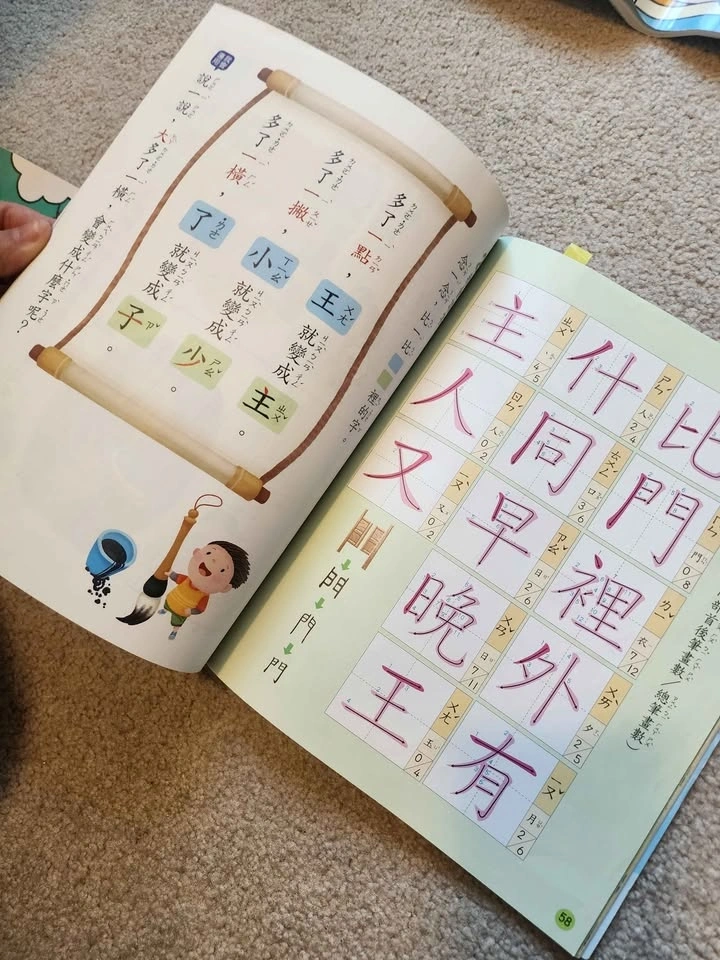 部首後筆畫數/總筆畫數)
比
門 門 0/8
裡 衣 7/12
外 ㄨㄞˋ 夕 2/5
有 ㄧㄡˇ 月 2/6
什 ㄕㄣˊ 人 2/4
同 ㄊㄨㄥˊ 口 3/6
早 ㄗㄠˇ 日 2/6
晚 ㄨㄢˇ 日 7/11
王 ㄨㄤˊ 玉 0/4
主 ㄓㄨˇ 丶 4/5
人 ㄖㄣˊ 人 0/2
又 ㄧㄡˋ 又 0/2
門
門
58
念一念,比一比裡的字。
多了一點,王就變成主。
多了一撇,小就變成少。
多了一橫,了就變成子。
說一說,大多了一橫,會變成什麼字呢?